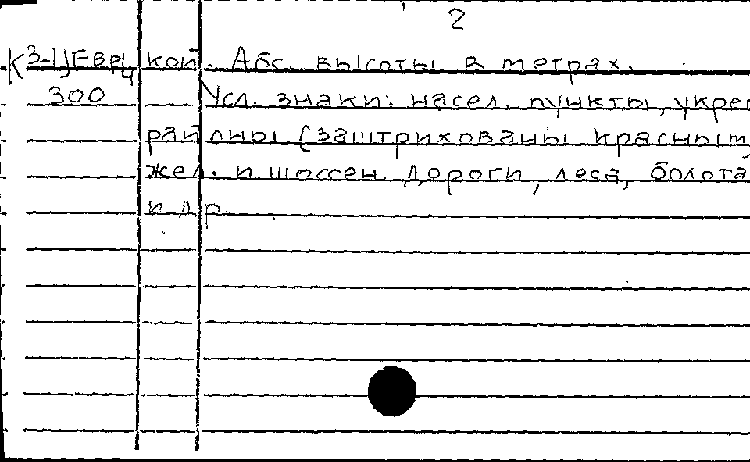 2
К 3-1)Евр/4 кой. Абс. высоты в метрах.
300 Усл. знаки: насел. пункты, укреп
районы (заштрихованы красным
жел. и шоссейн. дороги, леса, болота
и др.